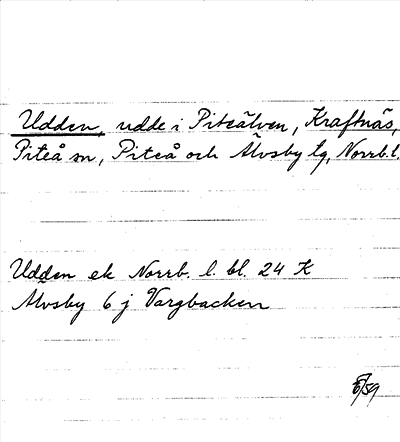 Udden, udde i Piteälven, Kraftnäs,
Piteå sn, Piteå och Älvsby tg, Norrb.l.
Udden ek Norrb. l. bl. 24 K
Älvsby 6 j Vargbacken
/59